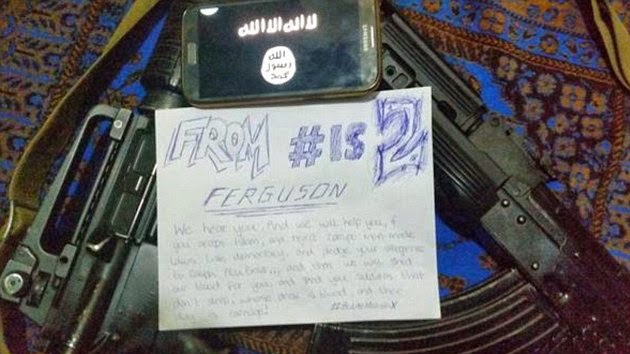 لا اله الا الله
الله
رسول
محمد
SAMSUNG
FROM #IS 2
FERGUSON
We hear you. And we will help you, if
you accept Islam, and reject corrupt man-made
laws like democracy, and pledge your allegiance
to Caliph Abu Bakr,, and then we will shed
our blood for you and send you soldiers that
don't sleep, whose drink is blood, and their
play is carnage!